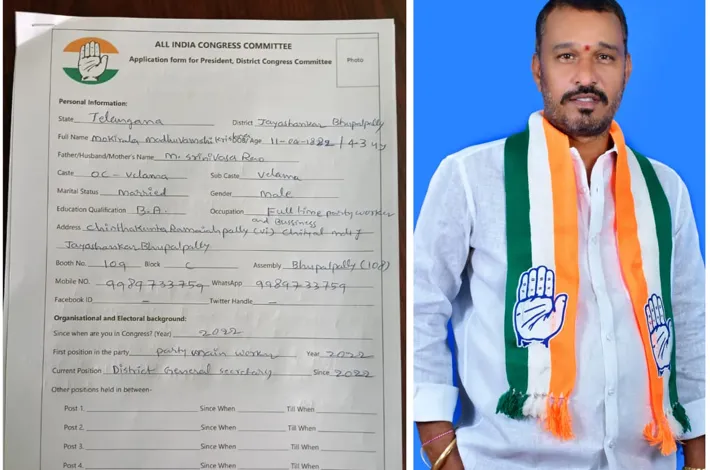 ALL INDIA CONGRESS COMMITTEE
Application form for President, District Congress Committee
Photo
Personal Information:
State Telangana District Jayashankar Bhupalpally
Full Name Mokirala Madhuvamshi Krishna DOB/Age 11-04-1882 / 43 yy
Father/Husband/Mother's Name M. Srinivasa Rao
Caste OC - Velama Sub Caste Velama
Marital Status Married Gender male
Education Qualification B.A. Occupation Full time party worker
and Bussiness
Address Chinthakunta Ramaiahpally (vi) Chityal mdl
Jayashankar Bhupalpally
Booth No. 109 Block C Assembly Bhupalpally (108)
Mobile NO. 9989733759 WhatsApp 9989733759
Facebook ID - Twitter Handle -
Organisational and Electoral background:
Since when are you in Congress? (Year) 2022
First position in the party party main worker Year 2022
Current Position District General secretary Since 2022
Other positions held in between-
Post 1. Since When Till When
Post 2. Since When Till When
Post 3. Since When Till When
Post 4. Since When Till When